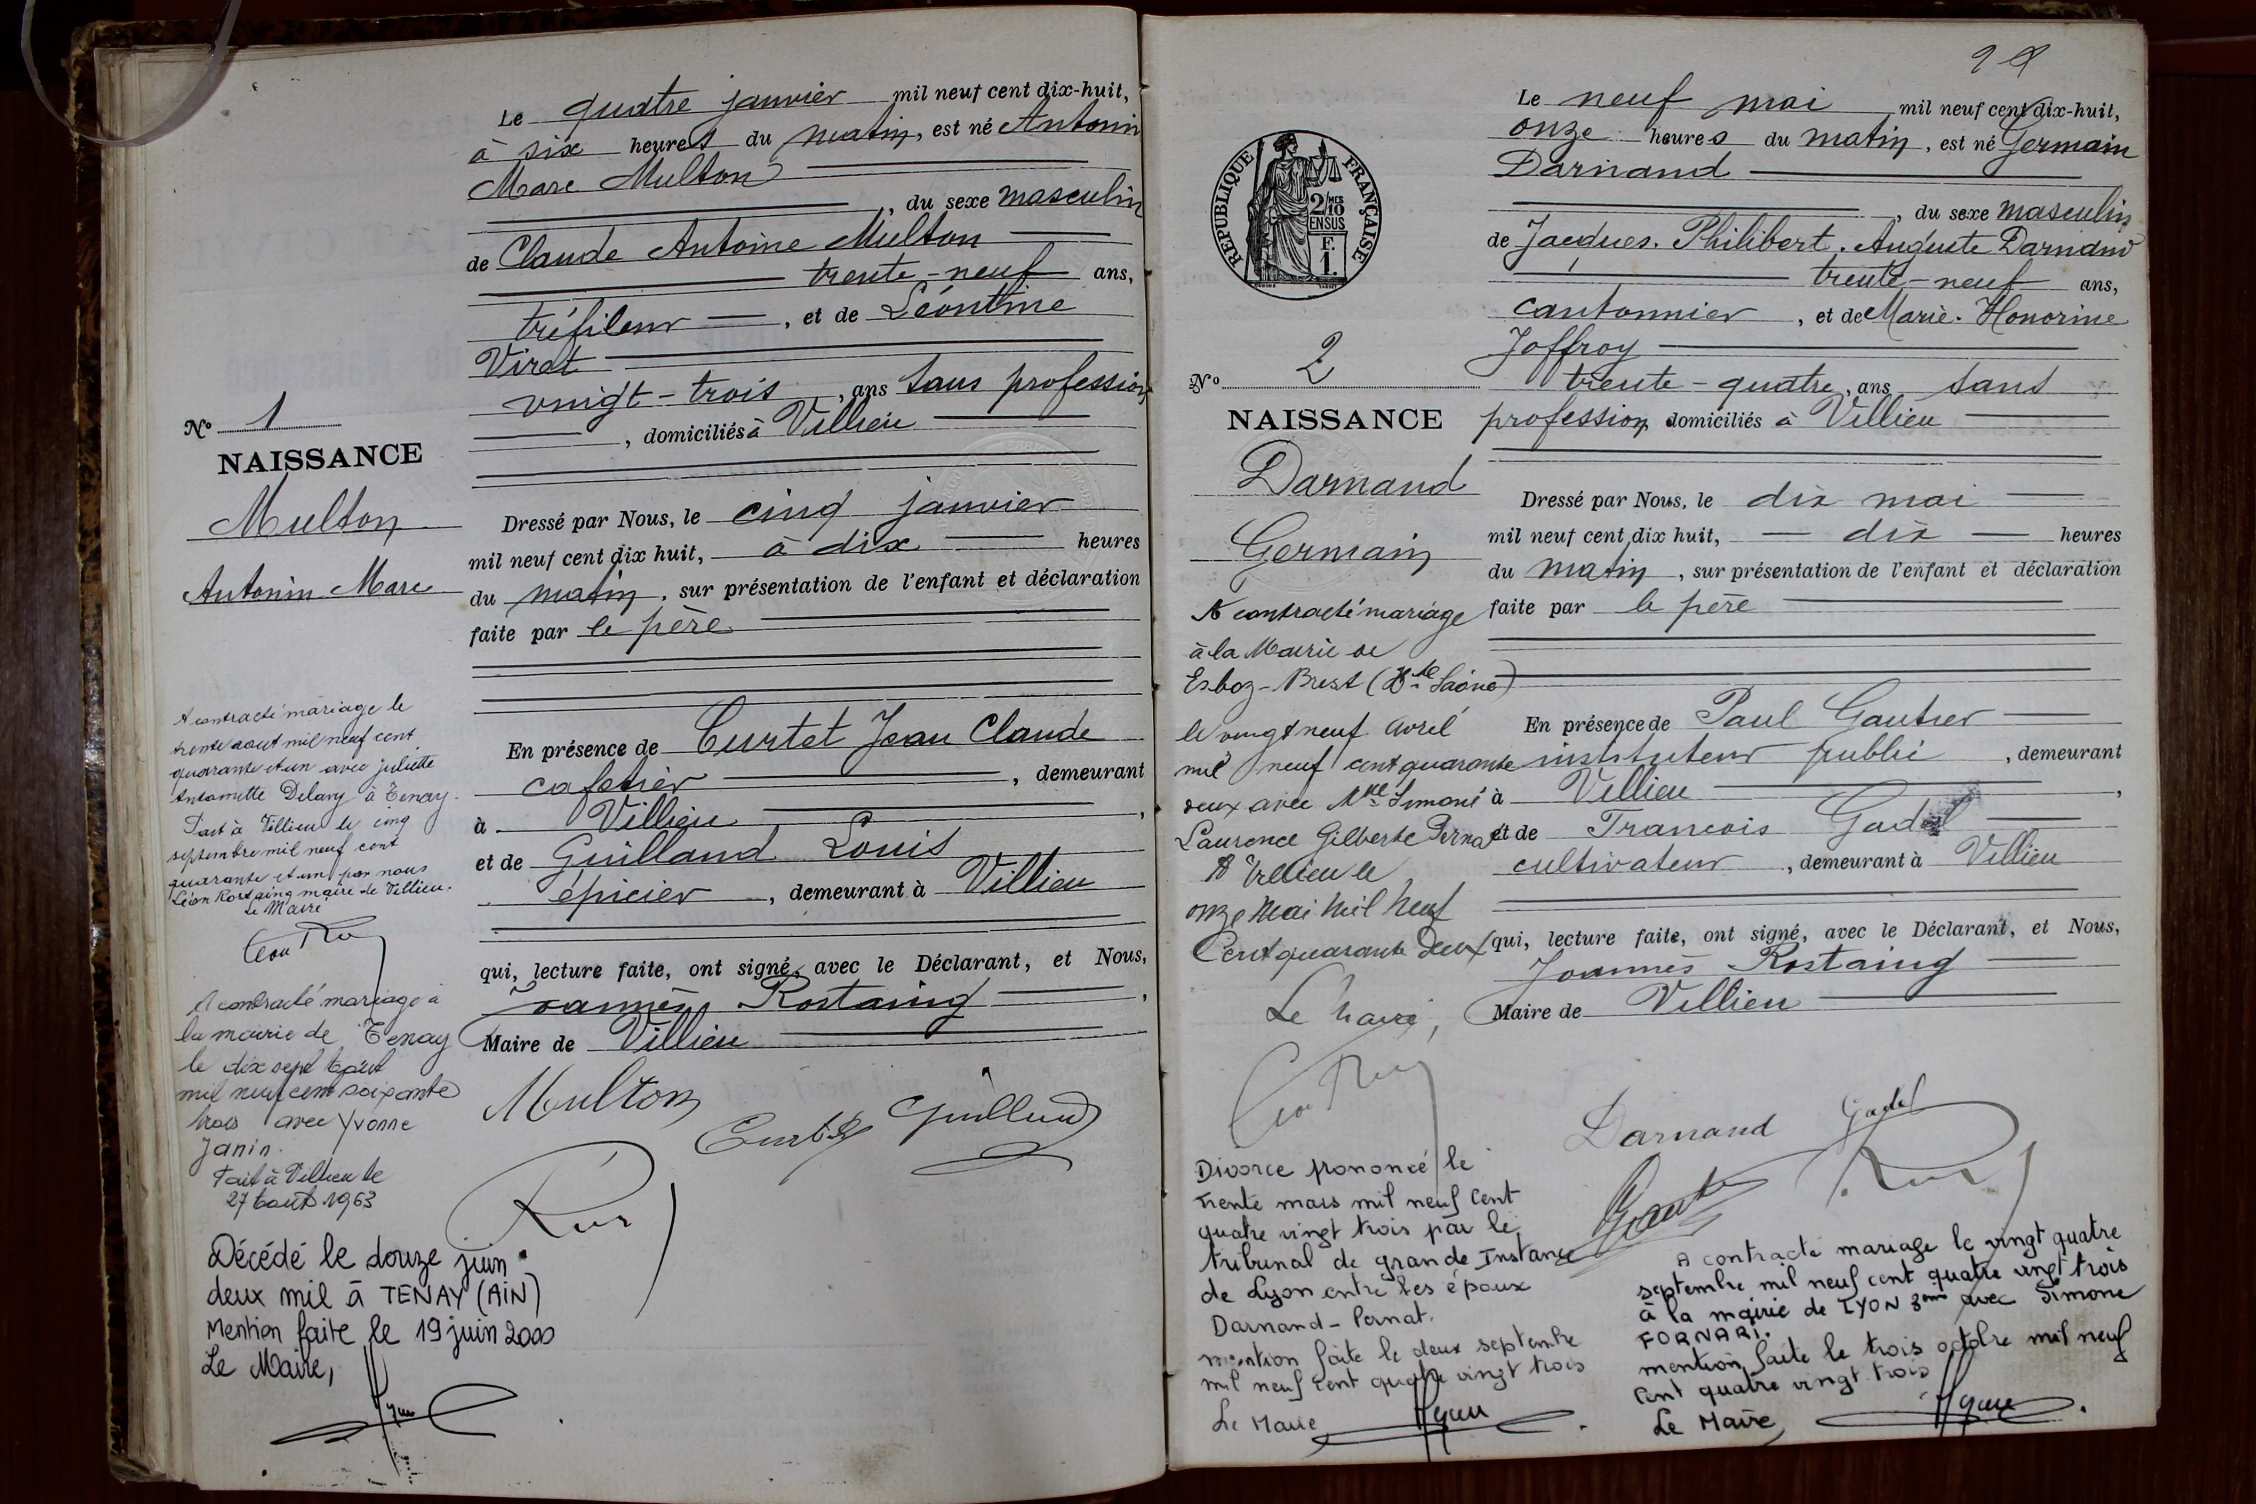 Le quatre janvier mil neuf cent dix-huit,
à six heures du matin, est né Antonin
Marc Multon
, du sexe masculin
de Claude Antoine Multon
trente-neuf ans,
tréfileur, et de Léontine
Virat
vingt-trois, ans sans profession
, domiciliés à Villieu
N° 1
NAISSANCE
Multon
Antonin Marc
Dressé par Nous, le cinq janvier
mil neuf cent dix huit, à dix heures
du matin, sur présentation de l'enfant et déclaration
faite par le père
En présence de Curtet Jean Claude
cafetier, demeurant
à Villieu,
et de Guilland Louis
épicier, demeurant à Villieu
qui, lecture faite, ont signé, avec le Déclarant, et Nous,
Joannès Rostaing,
Maire de Villieu
Multon
Curtet Guilland
A contracté mariage le
trente aout mil neuf cent
quarante et un avec juliette
Antoinette Delavy à Tenay.
Fait à Villieu le cinq
septembre mil neuf cent
quarante et un par nous
Léon Rostaing maire de Villieu.
Le Maire
A contracté mariage à
la mairie de Tenay
le dix sept Août
mil neuf cent soixante
trois avec Yvonne
Janin.
Fait à Villieu le
27 Août 1963
Décédé le douze juin
deux mil à TENAY (AIN)
Mention faite le 19 juin 2000
Le Maire,
Le neuf mai mil neuf cent dix-huit,
onze heures du matin, est né Germain
Darnand
, du sexe masculin
de Jacques. Philibert. Auguste Darnand
trente-neuf ans,
cantonnier, et de Marie. Honorine
Joffroy
trente-quatre, ans sans
profession domiciliés à Villieu
REPUBLIQUE FRANÇAISE
2/10 MES
EN SUS
F.
1.
N° 2
NAISSANCE
Darnand
Germain
Dressé par Nous, le dix mai
mil neuf cent dix huit, dix heures
du matin, sur présentation de l'enfant et déclaration
faite par le père
En présence de Paul Gautier
instituteur public, demeurant
à Villieu,
et de François Gadel
cultivateur, demeurant à Villieu
qui, lecture faite, ont signé, avec le Déclarant, et Nous,
Joannès Rostaing
Maire de Villieu
Darnand Gadel
A contracté mariage
à la Mairie de
Esboz-Brest (Hte Saône)
le vingt neuf avril
mil neuf cent quarante
deux avec Mlle Simone
Laurence Gilberte Pernat
A Villieu le
onze Mai Mil Neuf
Cent quarante deux
Le Maire,
Divorce prononcé le
trente mars mil neuf cent
quatre vingt trois par le
tribunal de grande Instance
de Lyon entre les époux
Darnand - Pernat.
mention faite le deux septembre
mil neuf cent quatre vingt trois
Le Maire
A contracté mariage le vingt quatre
septembre mil neuf cent quatre vingt trois
à la mairie de LYON 3eme avec Simone
FORNARI.
mention faite le trois octobre mil neuf
cent quatre vingt trois
Le Maire